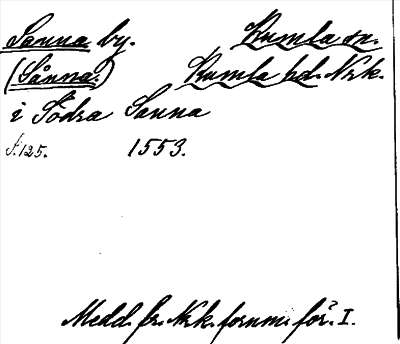 Sanna by. Kumla sn.
(Sånna.) Kumla hd. Nrk.
i Södra Sanna
S. 125. 1553.
Medd. fr. Nrk. fornm. för. I.